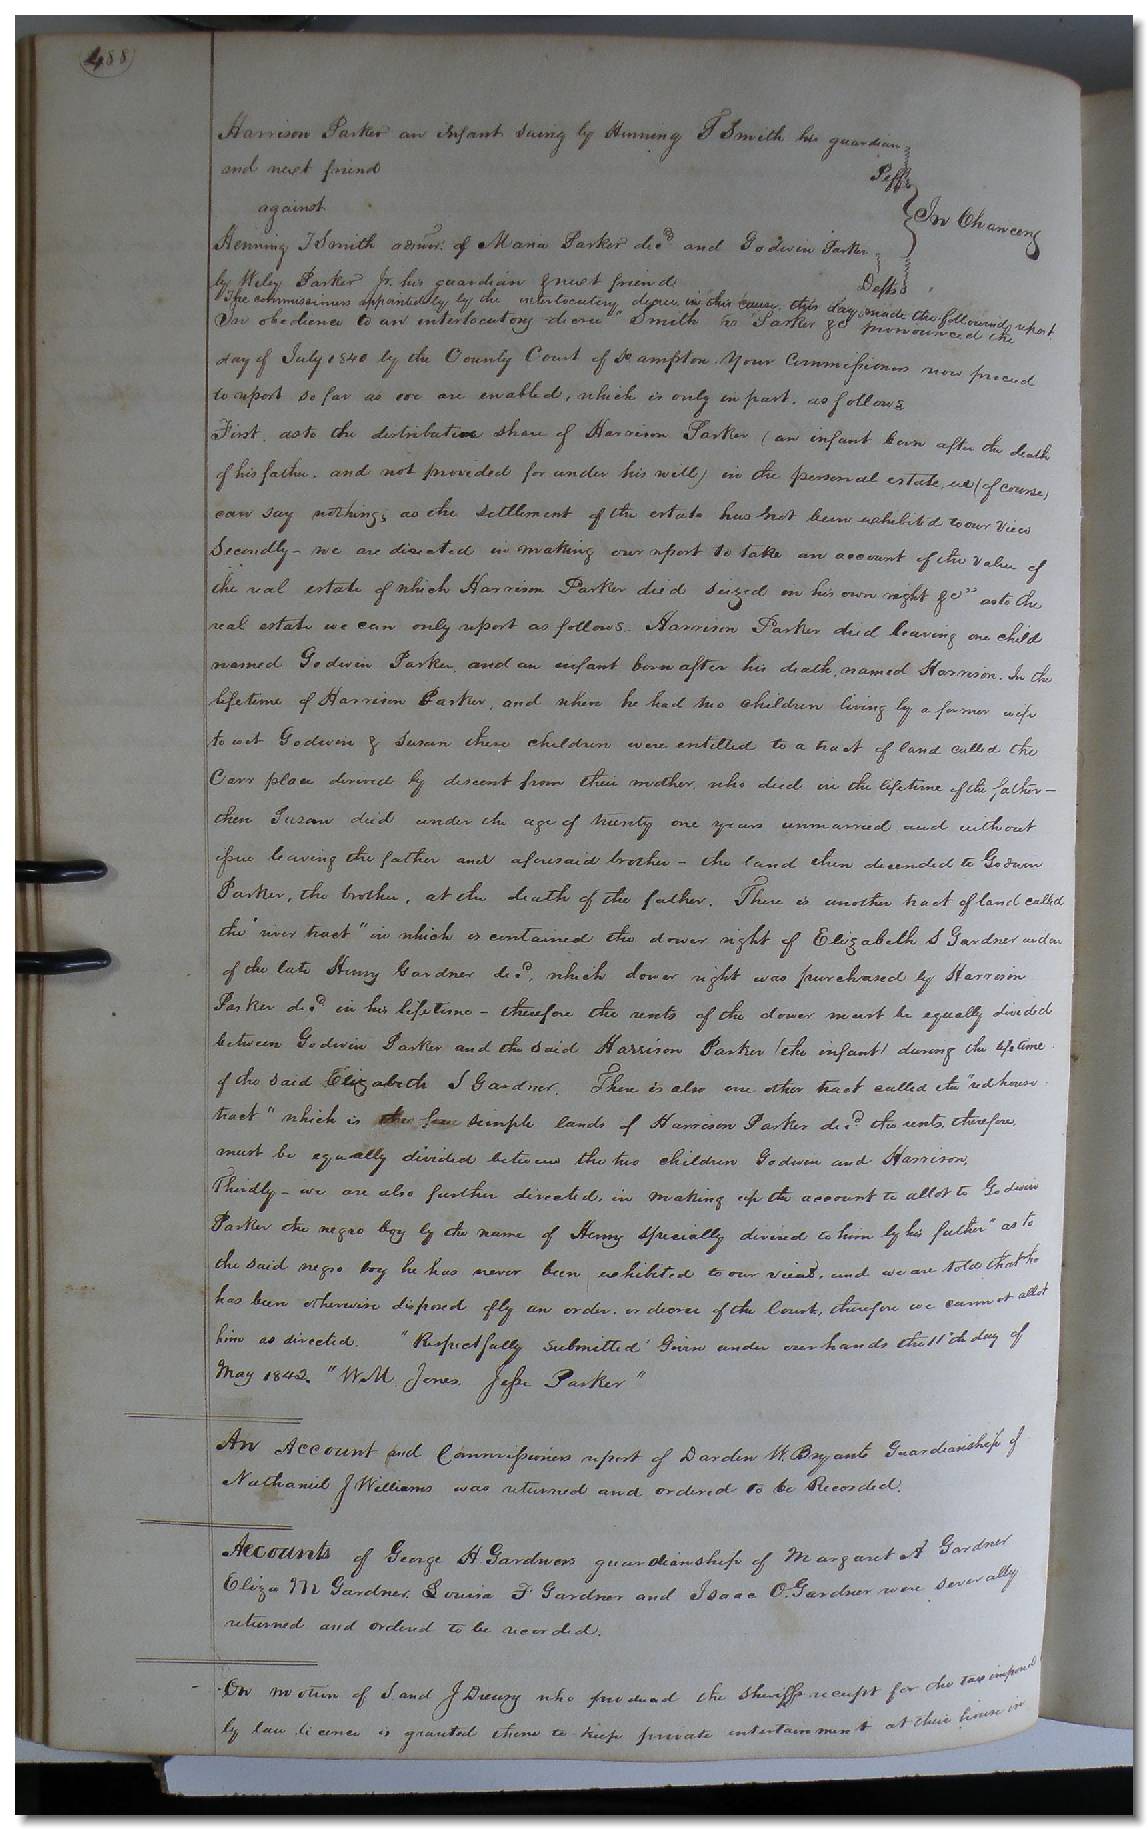 488
Harrison Parker an infant suing by Henning T Smith his guardian
and next friend Plff
against In Chancery
Henning T Smith admr. of Maria Parker decd and Godwin Parker
by Wiley Parker Jr. his guardian & next friend Defts
The commissioners appointed by the interlocutory decree in this cause this day made the following report
In obedience to an interlocutory decree "Smith vs Parker &c pronounced the
day of July 1840 by the County Court of S ampton. Your Commissioners now proceed
to report so far as we are enabled, which is only in part, as follows
First. as to the distributive share of Harrison Parker (an infant born after the death
of his father. and not provided for under his will) in the personal estate, we (of course)
can say nothing; as the settlement of the estate has not been exhibitd to our view
Secondly - we are directed in making our report to take an account of the value of
the real estate of which Harrison Parker died seized in his own right &c" as to the
real estate we can only report as follows. Harrison Parker died leaving one child
named Godwin Parker, and an infant born after his death, named Harrison. In the
lifetime of Harrison Parker, and when he had two children living by a former wife
to wit Godwin & Susan these children were entitled to a tract of land called the
Carr place derived by descent from their mother, who died in the lifetime of the father -
then Susan died under the age of twenty one years unmarried and without
issue leaving the father and aforesaid brother - the land then decended to Godwin
Parker, the brother, at the death of the father. There is another tract of land called
the "river tract" in which is contained the dower right of Elizabeth S Gardner widow
of the late Henry Gardner decd. which dower right was purchased by Harrison
Parker decd in his lifetime - therefore the rents of the dower must be equally divided
between Godwin Parker and the said Harrison Parker (the infant) during the lifetime
of the said Elizabeth S Gardner. There is also one other tract called the "red house
tract" which is the fee simple lands of Harrison Parker decd the rents, therefore,
must be equally divided between the two children Godwin and Harrison.
Thirdly - we are also further directed, in making up the account to allot to Godwin
Parker the negro boy by the name of Henry specially devised to him by his father" as to
the said negro boy he has never been exhibited to our view, and we are told that he
has been otherwise disposed of by an order, or decree of the Court, therefore we cannot allot
him as directed. "Respectfully submitted" Given under our hands the 11th day of
May 1842. "W. M. Jones. Jesse Parker"
An Account and Commissioners report of Darden W. Bryants Guardianship of
Nathaniel J Williams was returned and ordered to be Recorded.
Accounts of George H Gardners guardianship of Margaret A Gardner
Eliza M Gardner, Louisa F Gardner and Isaac O. Gardner were severally
returned and ordered to be recorded.
On motion of S. and J Drewry who produced the sheriffs receipt for the tax imposed
by law licence is granted them to keep private entertainment at their house in